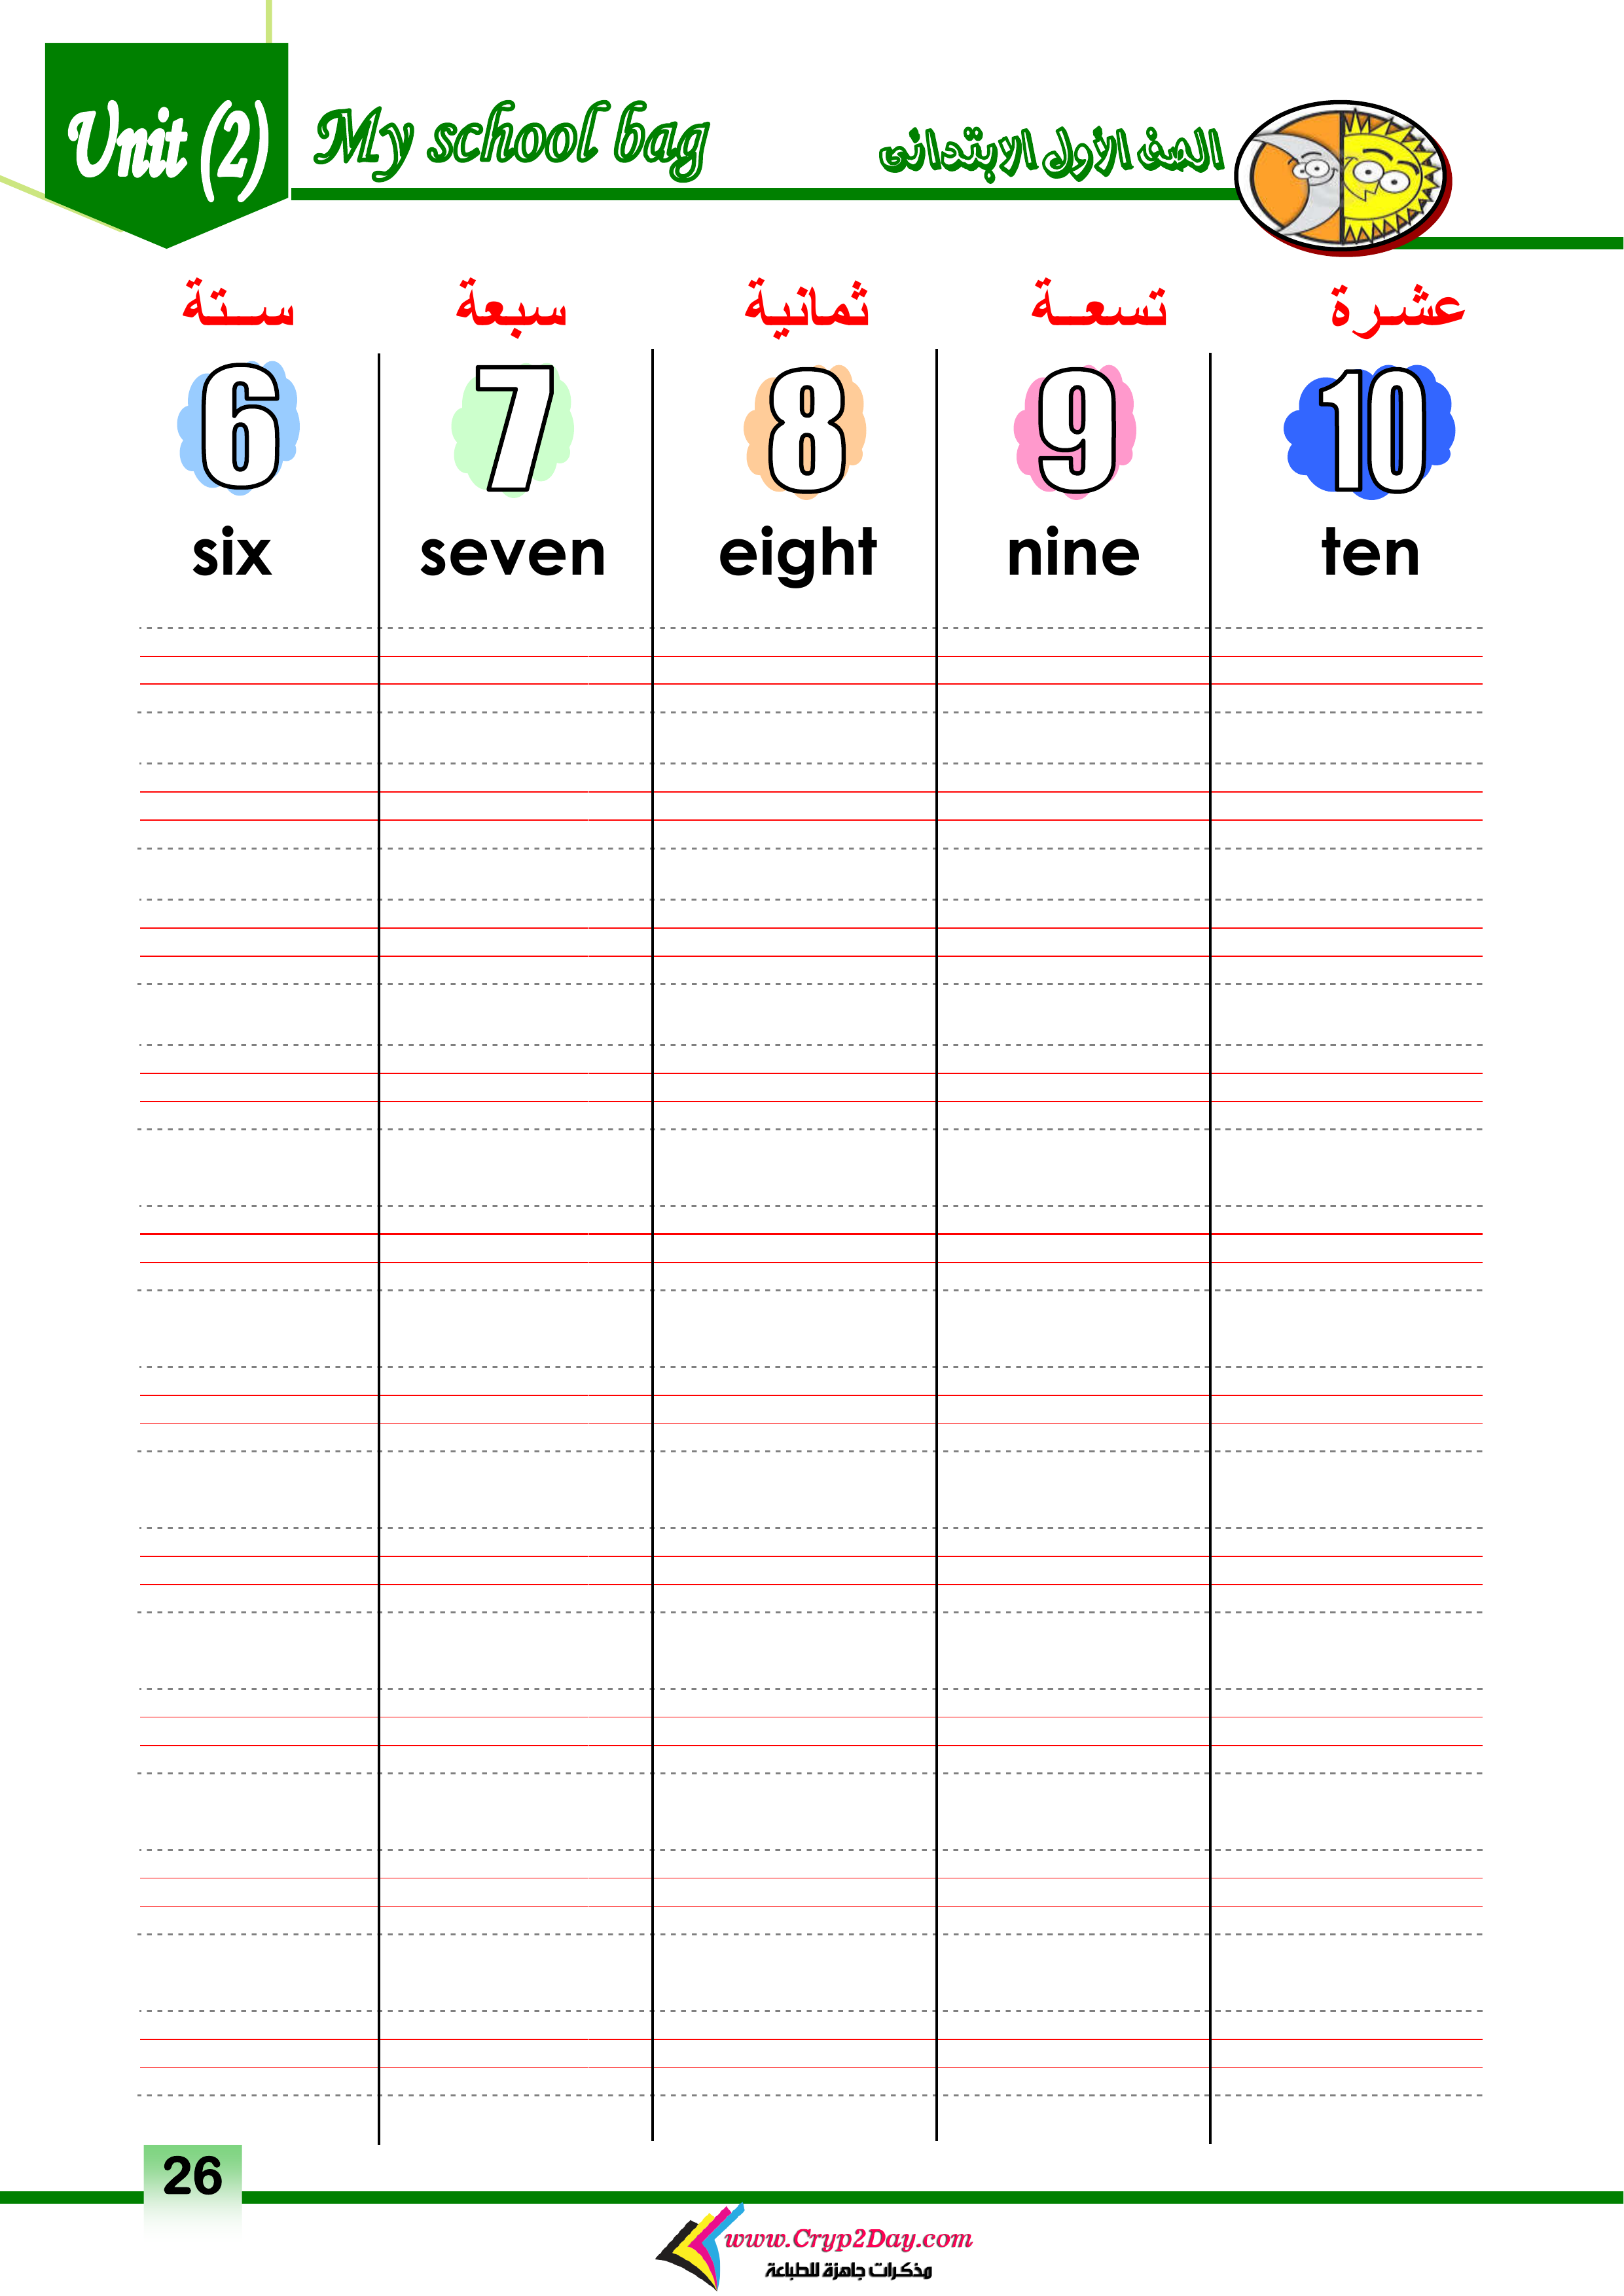 Unit (2) My school bag الصف الأول الابتدائى
ستة سبعة ثمانية تسعة عشرة
6 7 8 9 10
six seven eight nine ten
26
www.Cryp2Day.com
مذكرات جاهزة للطباعة